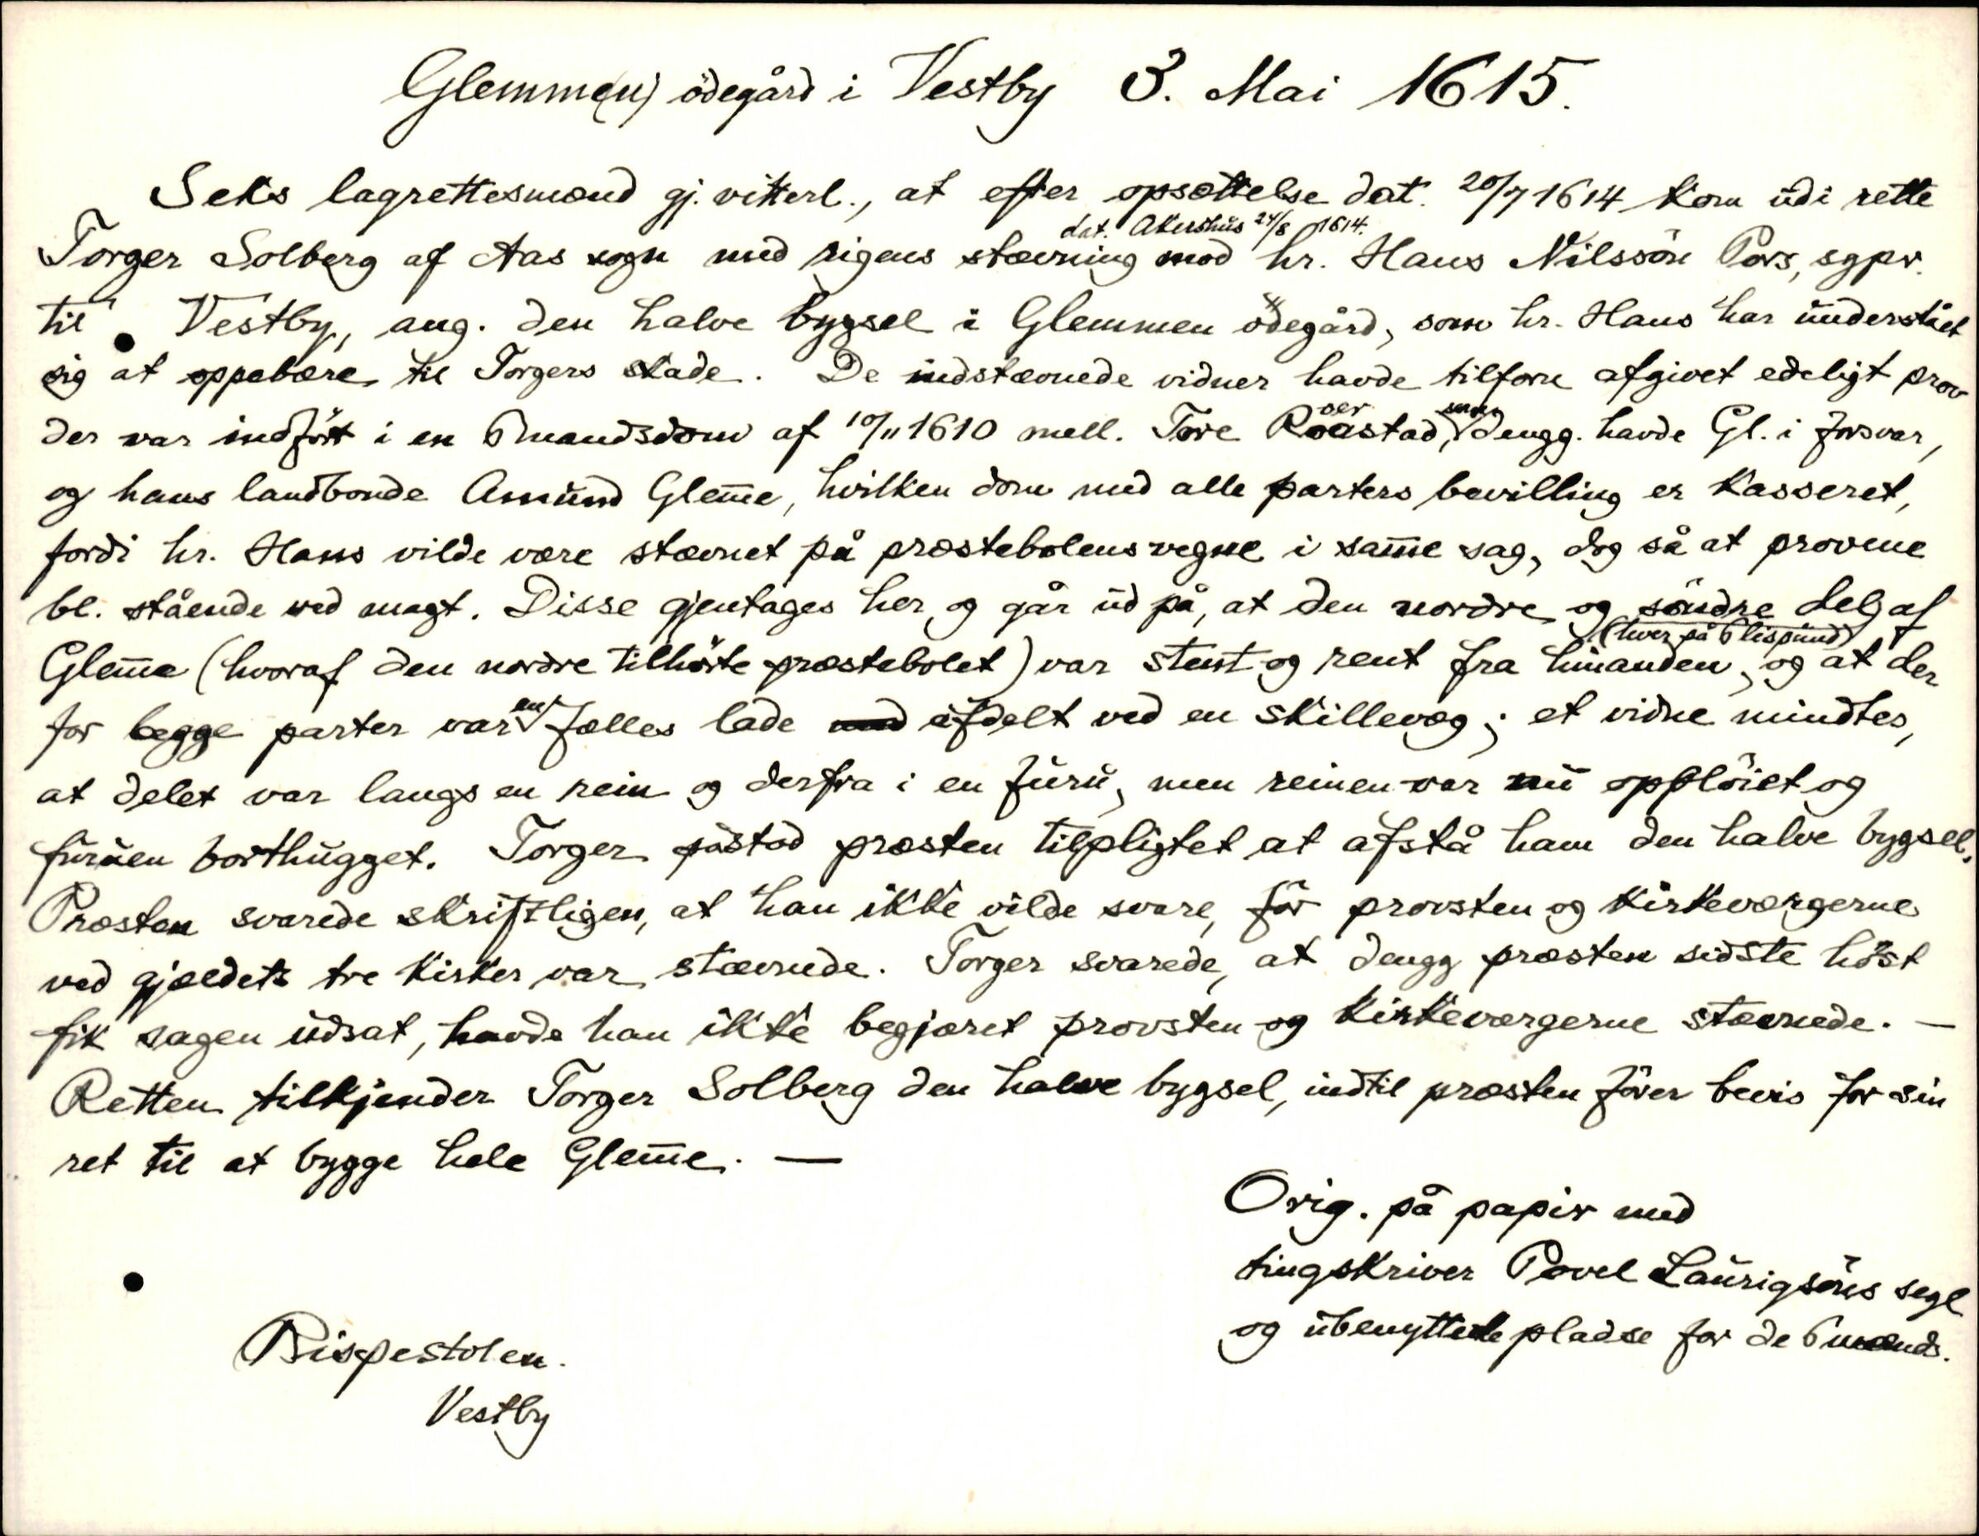 Glemme(n) ödegård i Vestby 3. Mai 1615.
Seks lagrettesmænd gj. vitterl., at efter opsættelse dat. 20/7 1614 kom udi rette
dat. Akershus 24/8 1614.
Torger Solberg af Aas sogn med rigens stævning mod hr. Hans Nilssön Pors, sgpr.
til Vestby, ang. den halve bygsel i Glemmen ödegård, som hr. Hans har understået
sig at oppebære til Torgers skade. De indstævnede vidner havde tilforn afgivet edeligt prov
der var indfört i en 6mandsdom af 10/11 1610 mell. Tore Roastad, som dengg. havde Gl. i forsvar,
og hans landbonde Amund Glem̄e, hvilken dom med alle parters bevilling er kasseret,
fordi hr. Hans vilde være stævnet på præstebolens vegne i sam̄e sag, dog så at provene
bl. stående ved magt. Disse gjentages her og går ud på, at den nordre og söndre del af
(hver på 6 lispund)
Glem̄e (hvoraf den nordre tilhörte præstebolet) var stent og rent fra hinanden, og at der
for begge parter var en fælles lade afdelt ved en skillevæg; et vidne mindtes,
at delet var langs en rein og derfra i en furu, men reinen var nu opplöiet og
furuen borthugget. Torger påstod præsten tilpligtet at afstå ham den halve bygsel.
Præsten svarede skriftligen, at han ikke vilde svare, för provsten og kirkeværgerne
ved gjældets tre kirker var stævnede. Torger svarede, at dengg præsten sidste höst
fik sagen udsat, havde han ikke begjæret provsten og kirkeværgerne stævnede. —
Retten tilkjender Torger Solberg den halve bygsel, indtil præsten förer bevis for sin
ret til at bygge hele Glem̄e. —
Orig. på papir med
tingskriver Povel Laurigsöns segl
og ubenyttede pladse for de 6 mænds.
Bispestolen.
Vestby